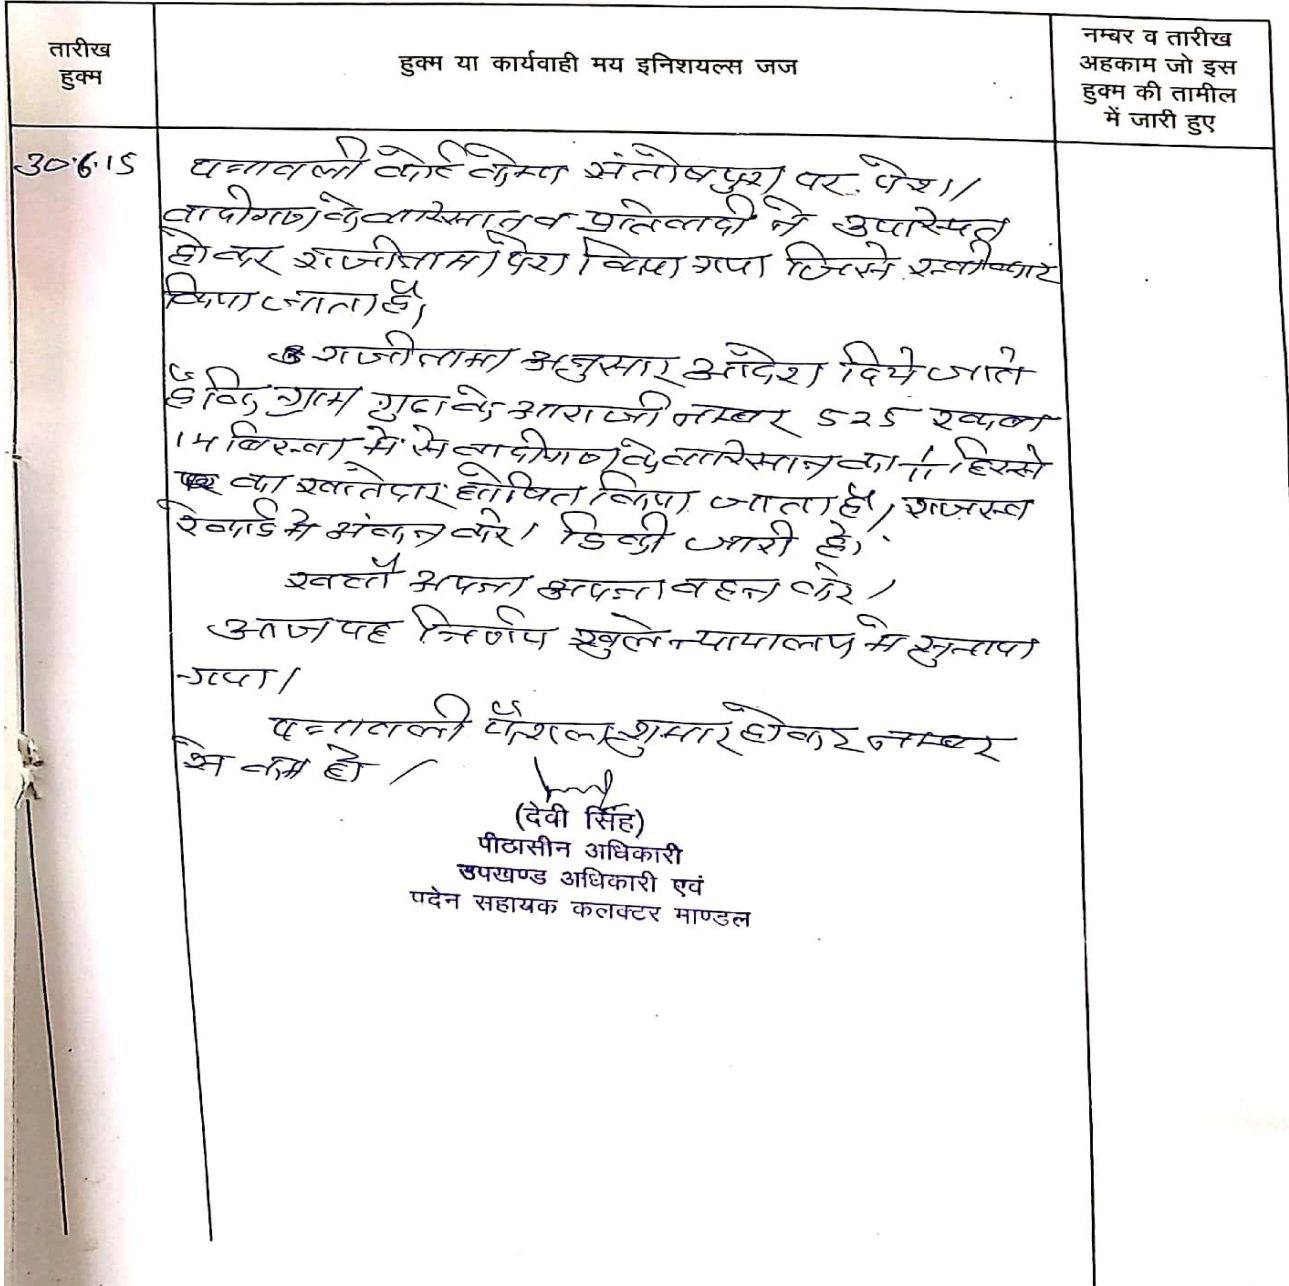 तारीख
हुक्म
हुक्म या कार्यवाही मय इनिशयल्स जज
नम्बर व तारीख
अहकाम जो इस
हुक्म की तामील
में जारी हुए
30.6.15
पत्रावली कोर्ट केम्प संतोषपुरा पर पेश।
वादीगण के वारिसान व प्रतिवादी ने उपस्थित
होकर राजीनामा पेश किया गया जिसे स्वीकार
किया जाता है।
राजीनामा अनुसार आदेश दिये जाते
है कि ग्राम गुढा के आराजी नम्बर 525 रकबा
14 बिस्वा में से वादीगण के वारिसान का हिस्से
का खातेदार घोषित किया जाता है, राजस्व
रेकार्ड मे अंकन करे। डिक्री जारी हो।
खर्चा अपना अपना वहन करे।
आज यह निर्णय खुले न्यायालय मे सुनाया
गया।
पत्रावली फैशल शुमार होकर नम्बर
से कम हो।
(देवी सिंह)
पीठासीन अधिकारी
उपखण्ड अधिकारी एवं
पदेन सहायक कलक्टर माण्डल